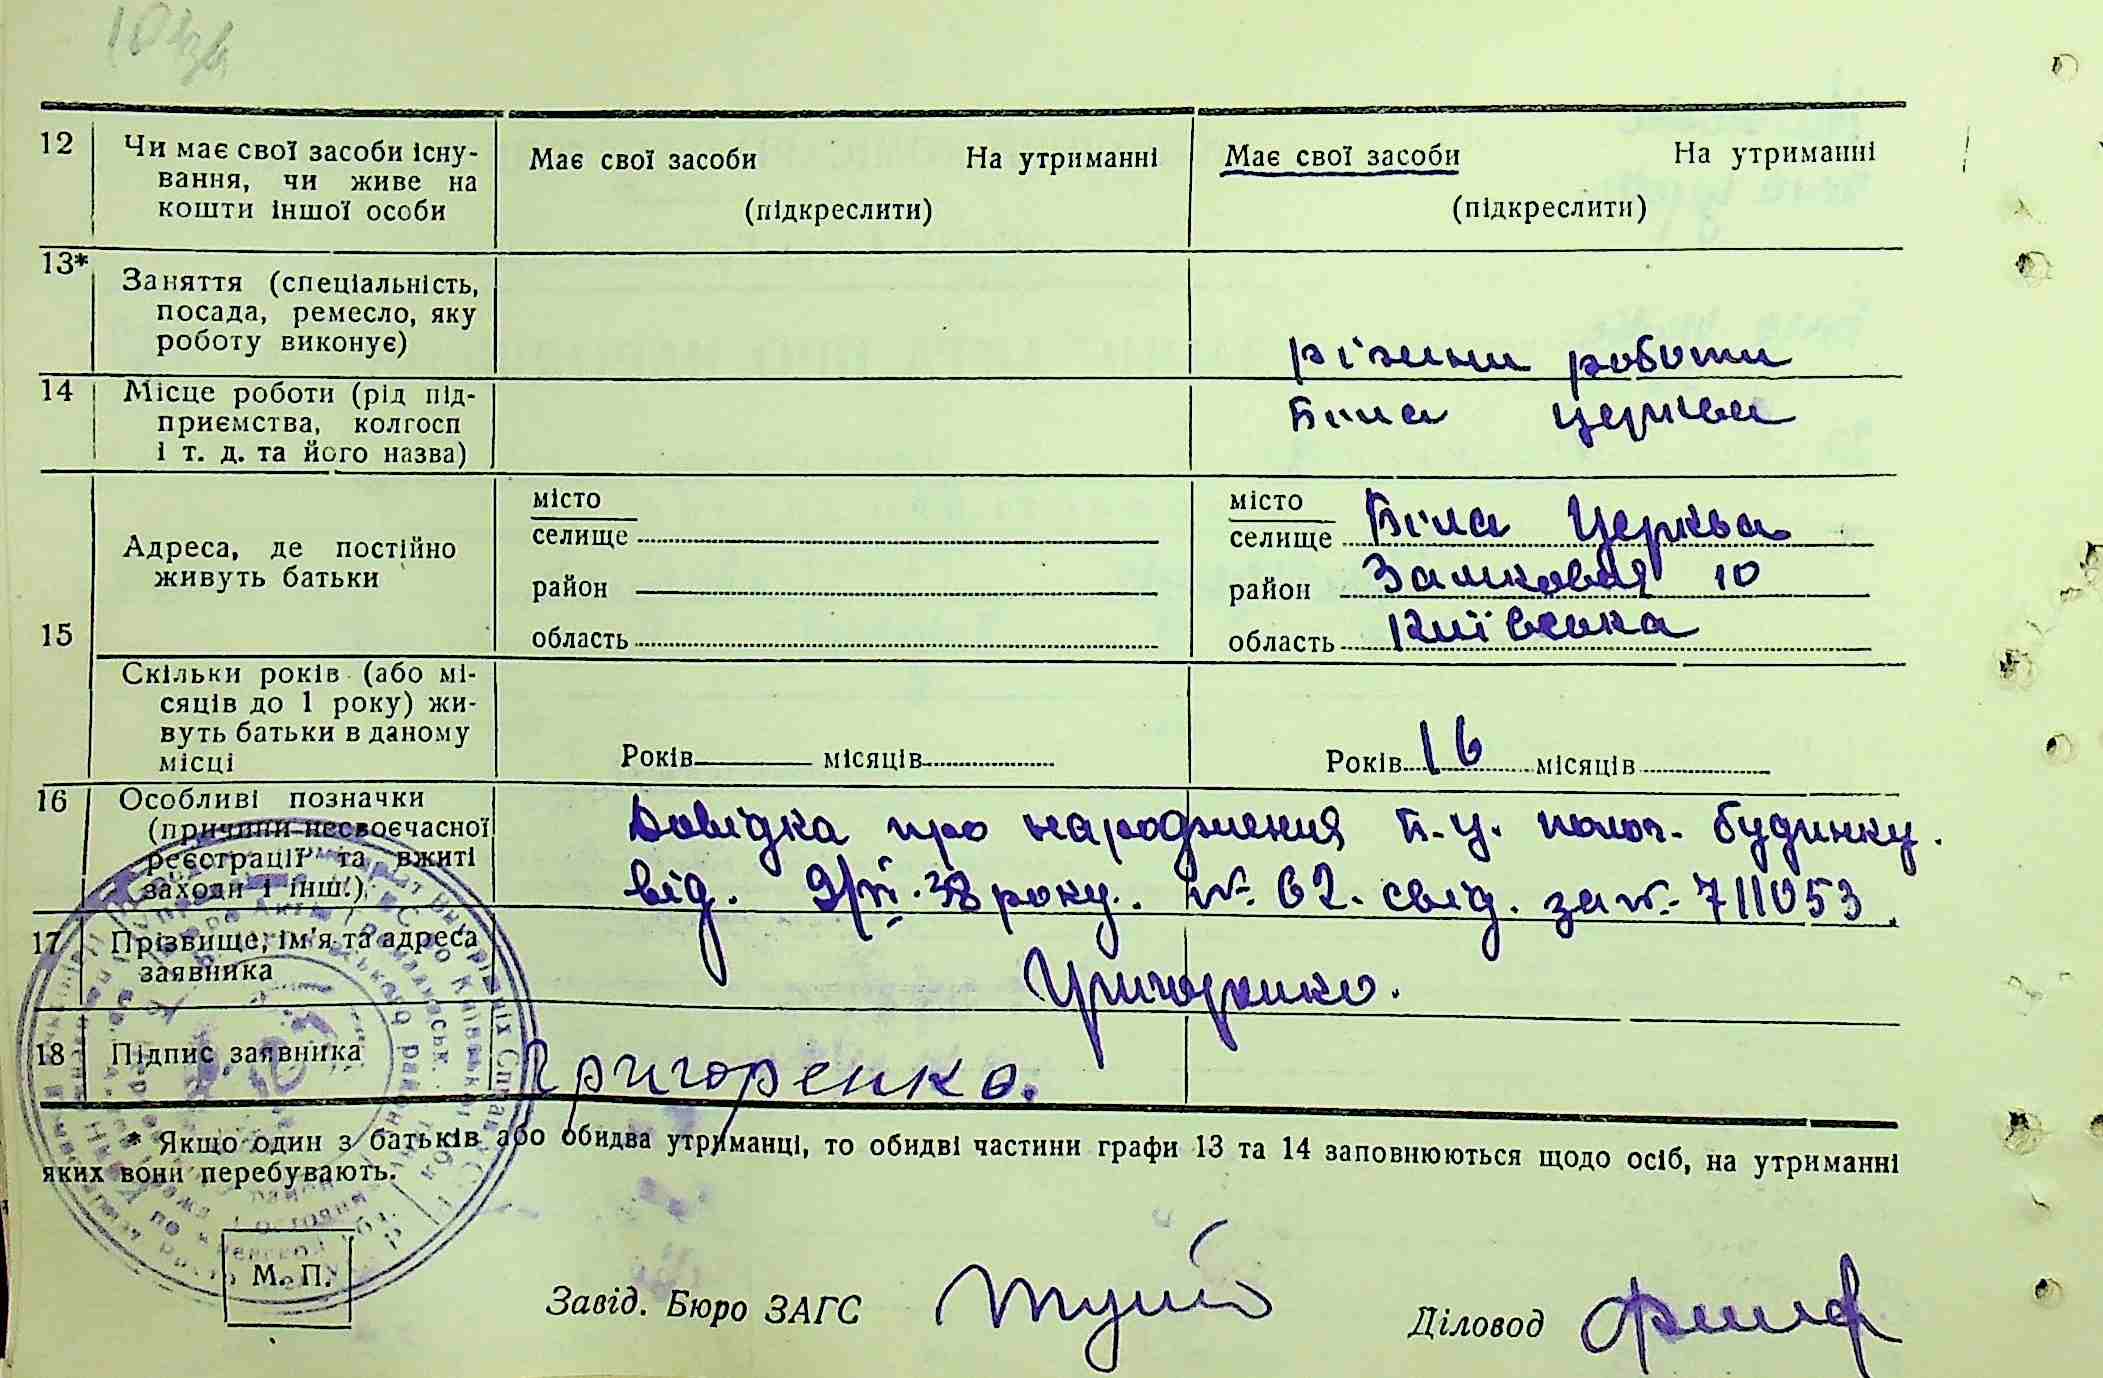 12 Чи має свої засоби існу-
вання, чи живе на
кошти іншої особи
Має свої засоби На утриманні
(підкреслити)
Має свої засоби На утриманні
(підкреслити)
13* Заняття (спеціальність,
посада, ремесло, яку
роботу виконує)
різни роботи
14 Місце роботи (рід під-
приємства, колгосп
і т. д. та його назва)
Біла церква
15
Адреса, де постійно
живуть батьки
місто
селище
район
область
місто
селище Біла Церква
район Замковая 10
область Київська
Скільки років (або мі-
сяців до 1 року) жи-
вуть батьки в даному
місці
Років місяців
Років 16 місяців
16 Особливі позначки
(причини несвоєчасної
реєстрації та вжиті
заходи і інш.)
Довідка про народження Б.Ц. полог. будинку.
від. 9/VI.38 року. №. 62. свід. за №. 711053.
17 Прізвище, ім'я та адреса
заявника
Григоренко.
18 Підпис заявника
Григоренко.
* Якщо один з батьків або обидва утриманці, то обидві частини графи 13 та 14 заповнюються щодо осіб, на утриманні
яких вони перебувають.
М. П.
Завід. Бюро ЗАГС
Діловод